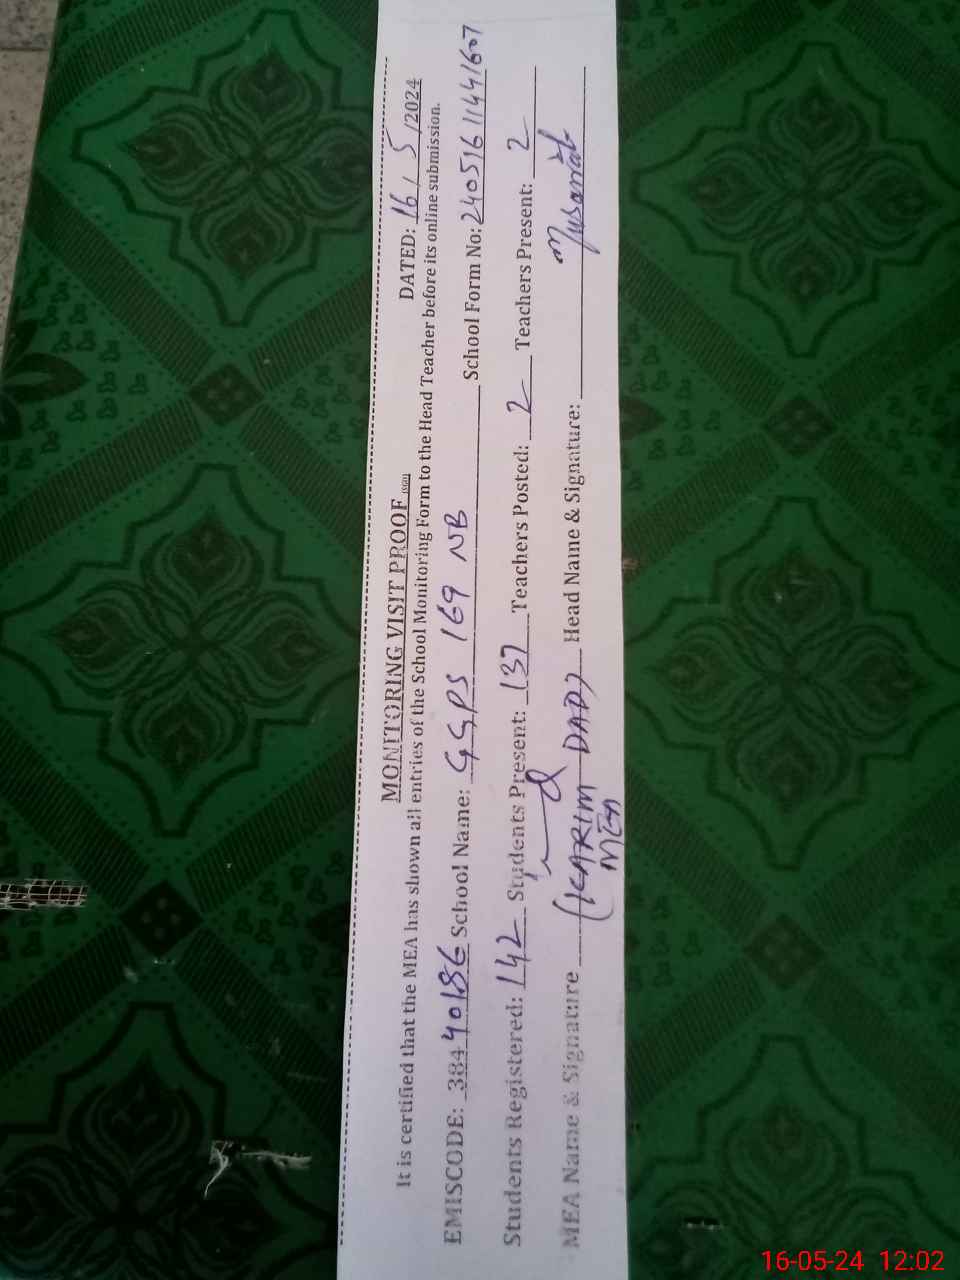 MONITORING VISIT PROOF DATED: 16 / 5 /2024
It is certified that the MEA has shown all entries of the School Monitoring Form to the Head Teacher before its online submission.
EMISCODE: 38440186 School Name: GGPS 169 NB School Form No: 24051611441607
Students Registered: 142 Students Present: 137 Teachers Posted: 2 Teachers Present: 2
MEA Name & Signature (KARIM DAD) Head Name & Signature: Musarrat
MEA
16-05-24 12:02